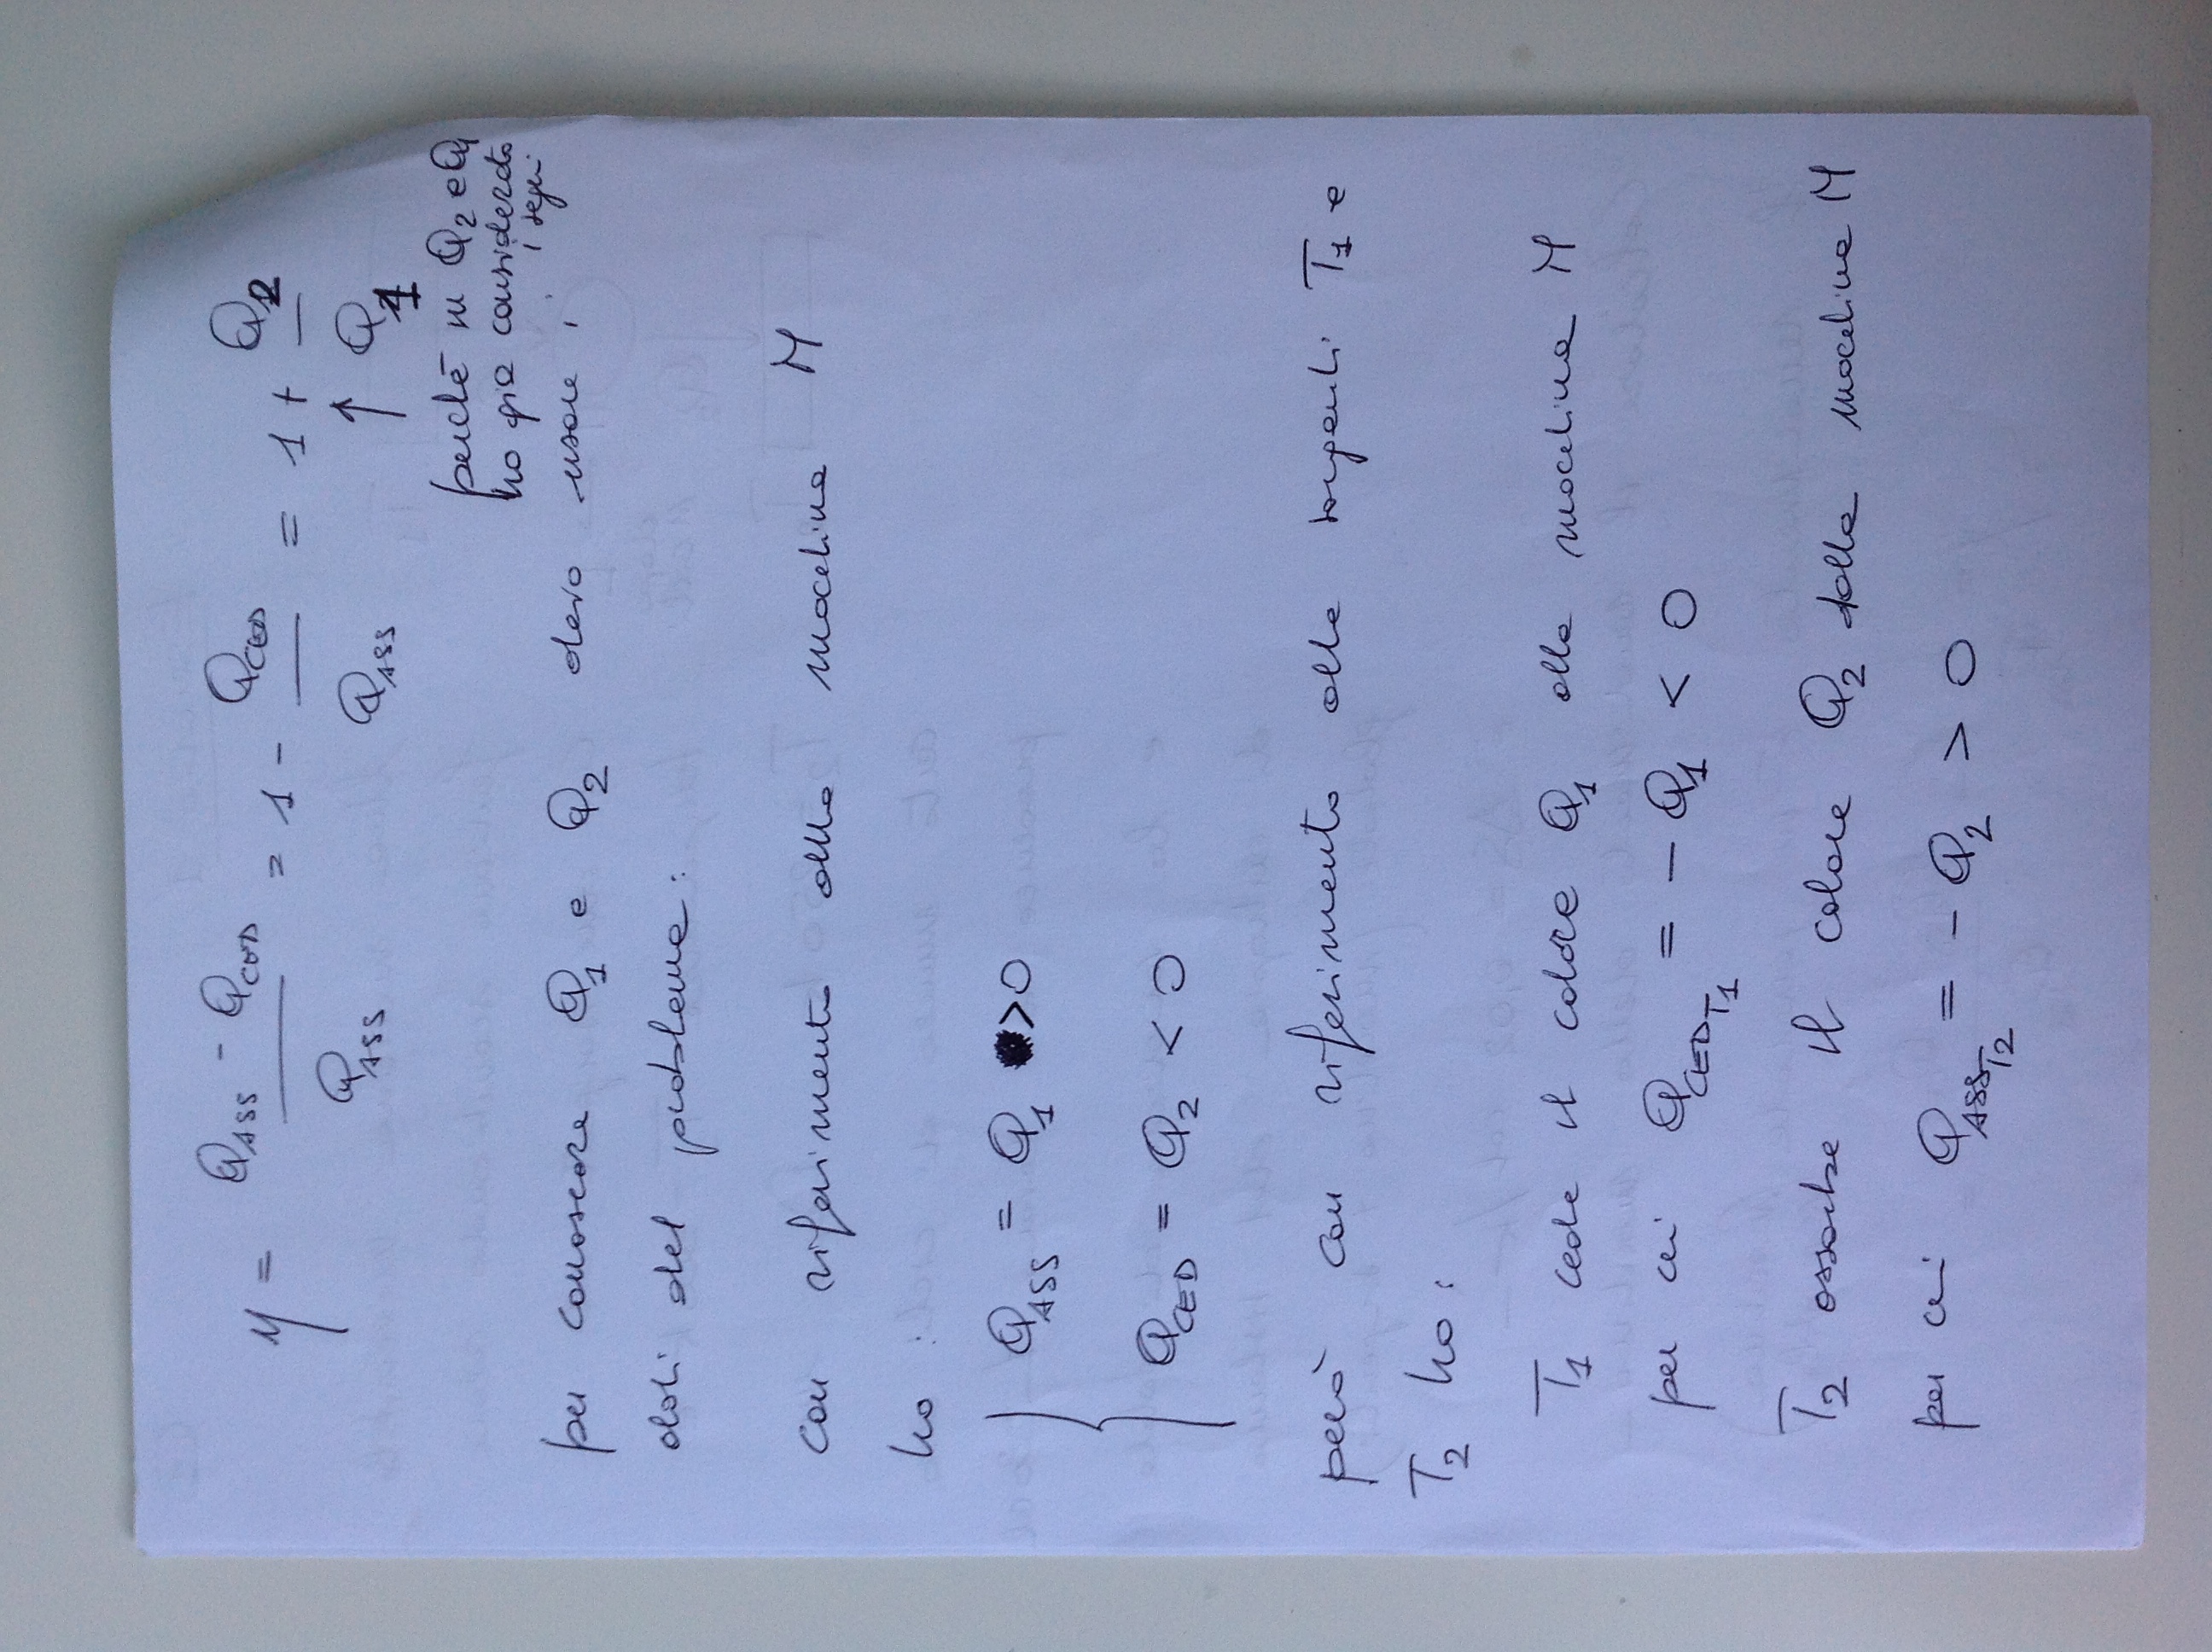 η = (Q_ASS - Q_CED) / Q_ASS = 1 - Q_CED / Q_ASS = 1 + Q_2 / Q_1
↑
perché in Q_2 e Q_1
ho già considerato
i segni
per conoscere Q_1 e Q_2 devo usare i
dati del problema:
con riferimento alla macchina M
ho :
Q_ASS = Q_1 >0
Q_CED = Q_2 < 0
però con riferimento alle sorgenti T_1 e
T_2 ho :
T_1 cede il calore Q_1 alla macchina M
per cui Q_CED_T1 = - Q_1 < 0
T_2 assorbe il calore Q_2 dalla macchina M
per cui Q_ASS_T2 = - Q_2 > 0